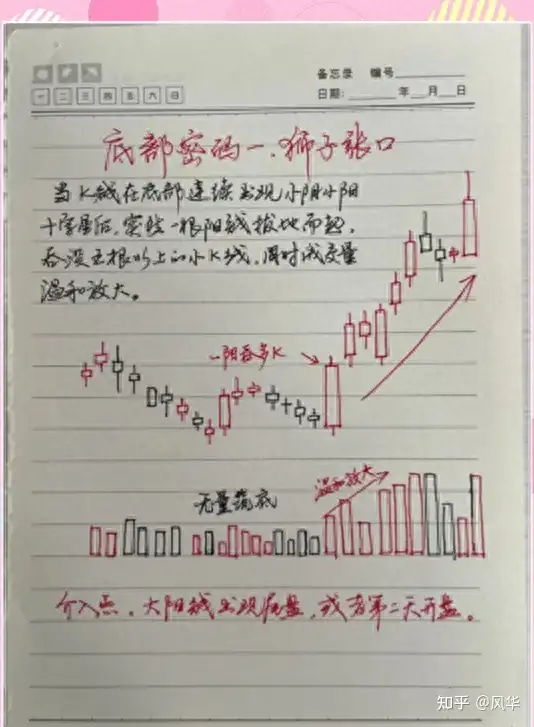 备忘录 编号
一 二 三 四 五 六 日
日期: 年 月 日
底部密码一.狮子张口
当K线在底部连续出现小阴小阳
十字星后,突然一根阳线拔地而起,
吞没五根以上的小K线,同时成交量
温和放大。
一阳吞多K
温和放大
无量筑底
介入点,大阳线出现尾盘,或者第二天开盘。
知乎 @风华